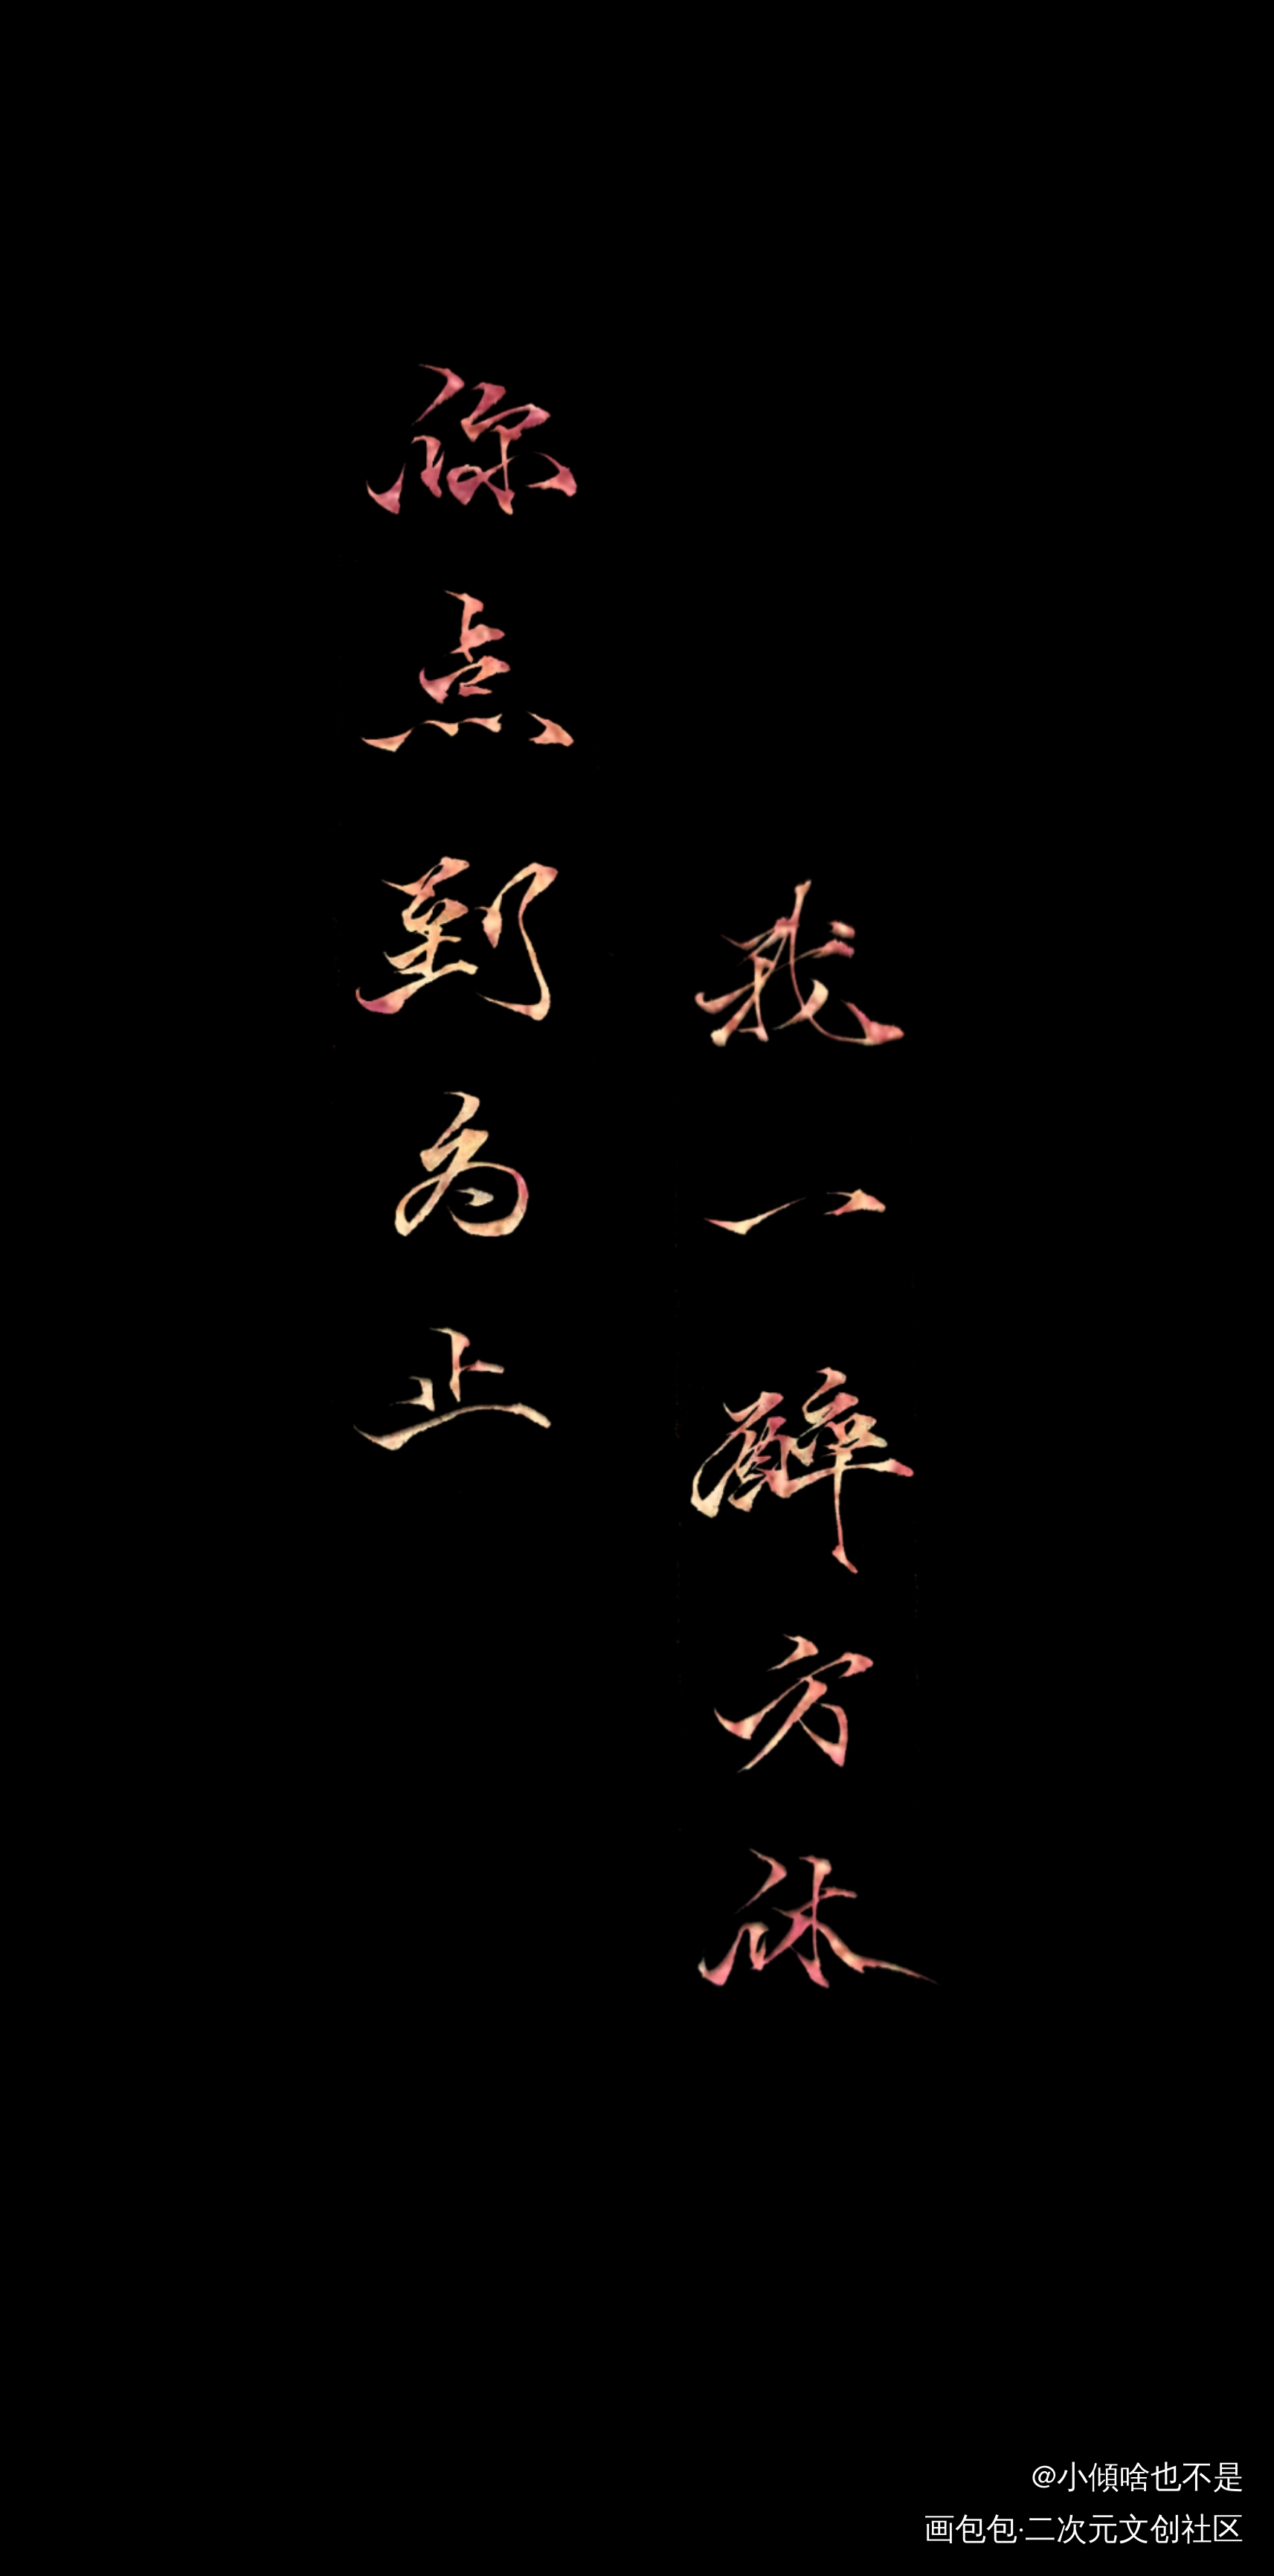 你点到为止
我一醉方休
@小傾啥也不是
画包包·二次元文创社区